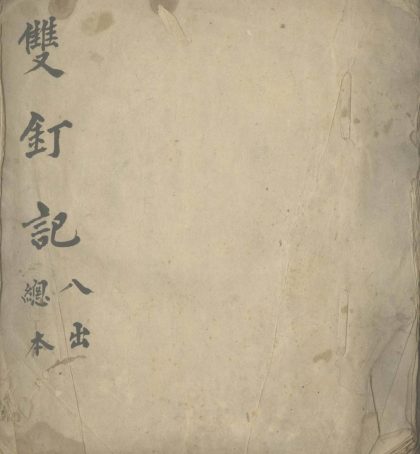 雙釘記
八出
總本